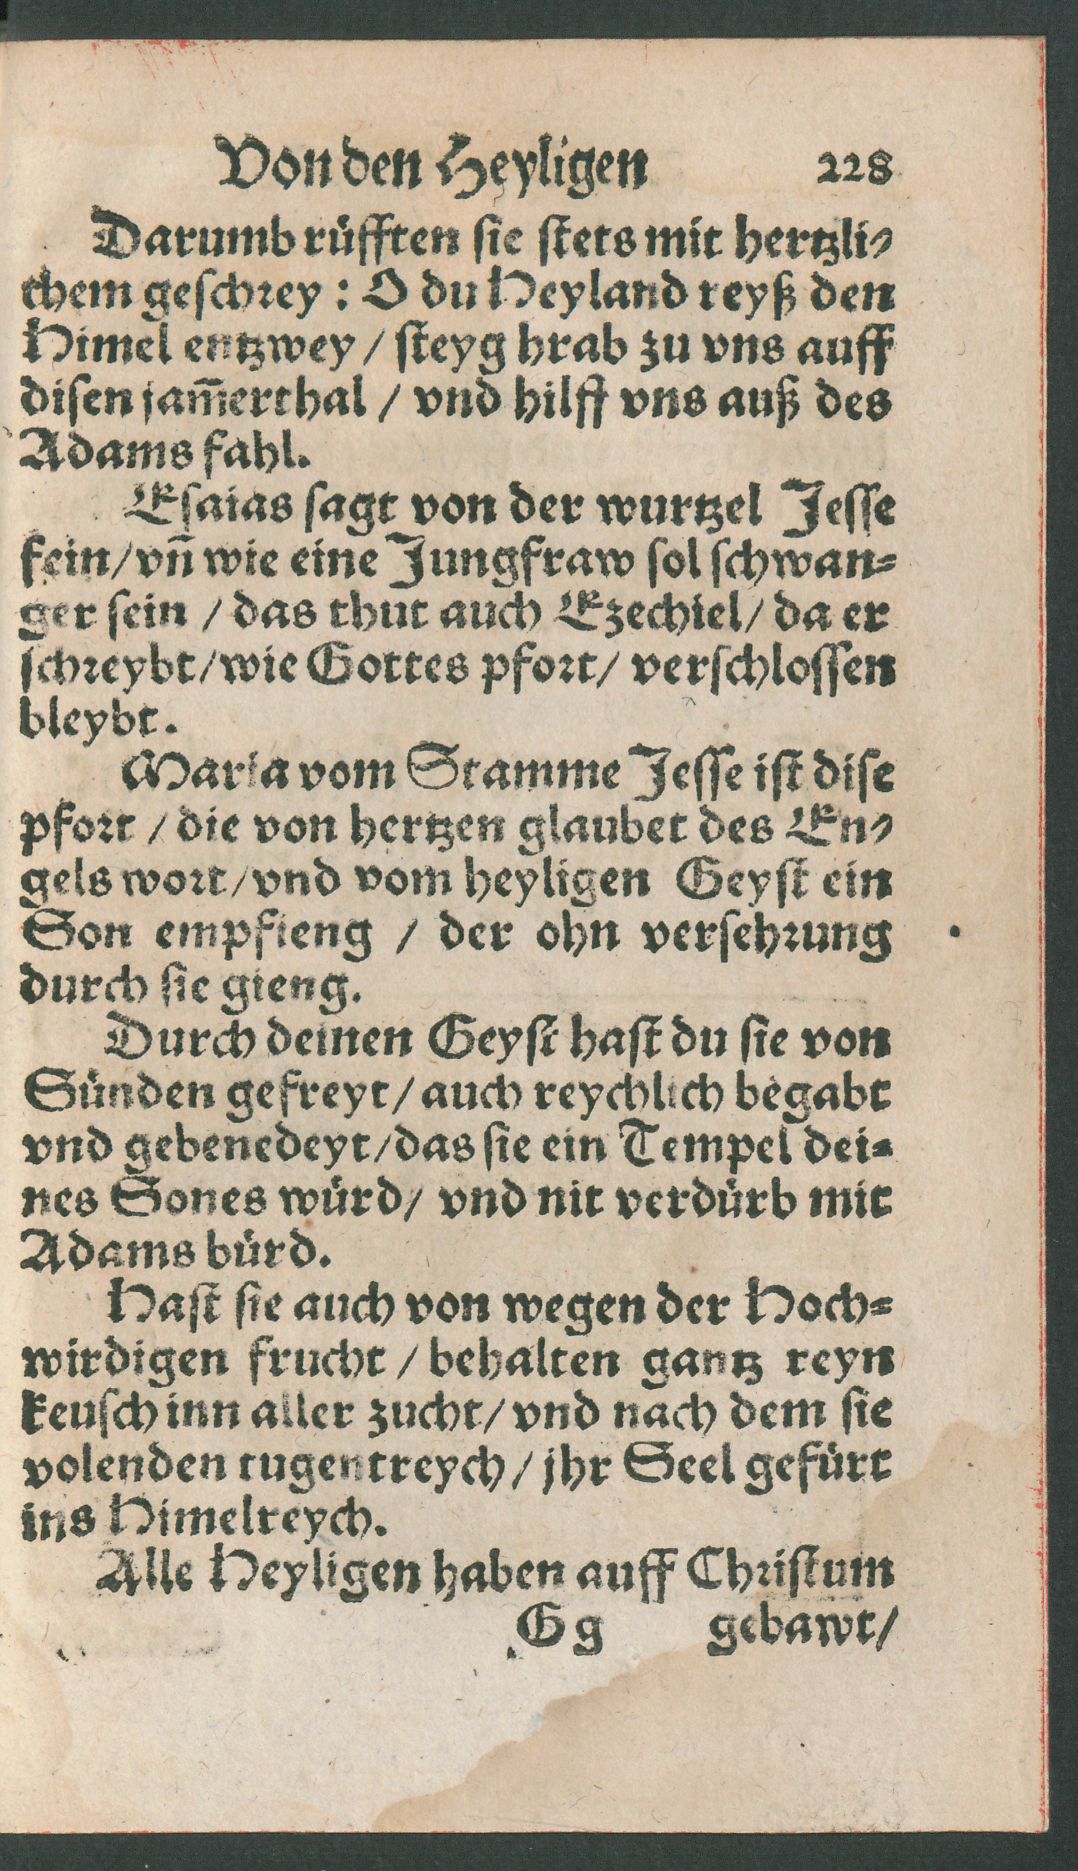 Von den Heyligen 228
Darumb rüfften sie stets mit hertzli-
chem geschrey : O du Heyland reyß den
Himel entzwey / steyg hrab zu vns auff
disen jam̄erthal / vnd hilff vns auß des
Adams fahl.
Esaias sagt von der wurtzel Jesse
fein/vn̄ wie eine Jungfraw sol schwan-
ger sein / das thut auch Ezechiel/ da er
schreybt/wie Gottes pfort/ verschlossen
bleybt.
Maria vom Stamme Jesse ist dise
pfort / die von hertzen glaubet des En-
gels wort/vnd vom heyligen Geyst ein
Son empfieng / der ohn versehrung
durch sie gieng.
Durch deinen Geyst hast du sie von
Sünden gefreyt/ auch reychlich begabt
vnd gebenedeyt/das sie ein Tempel dei-
nes Sones würd/ vnd nit verdürb mit
Adams bürd.
Hast sie auch von wegen der Hoch-
wirdigen frucht / behalten gantz reyn
keusch inn aller zucht/ vnd nach dem sie
volenden tugentreych/ jhr Seel gefürt
ins Himelreych.
Alle Heyligen haben auff Christum
G g gebawt/